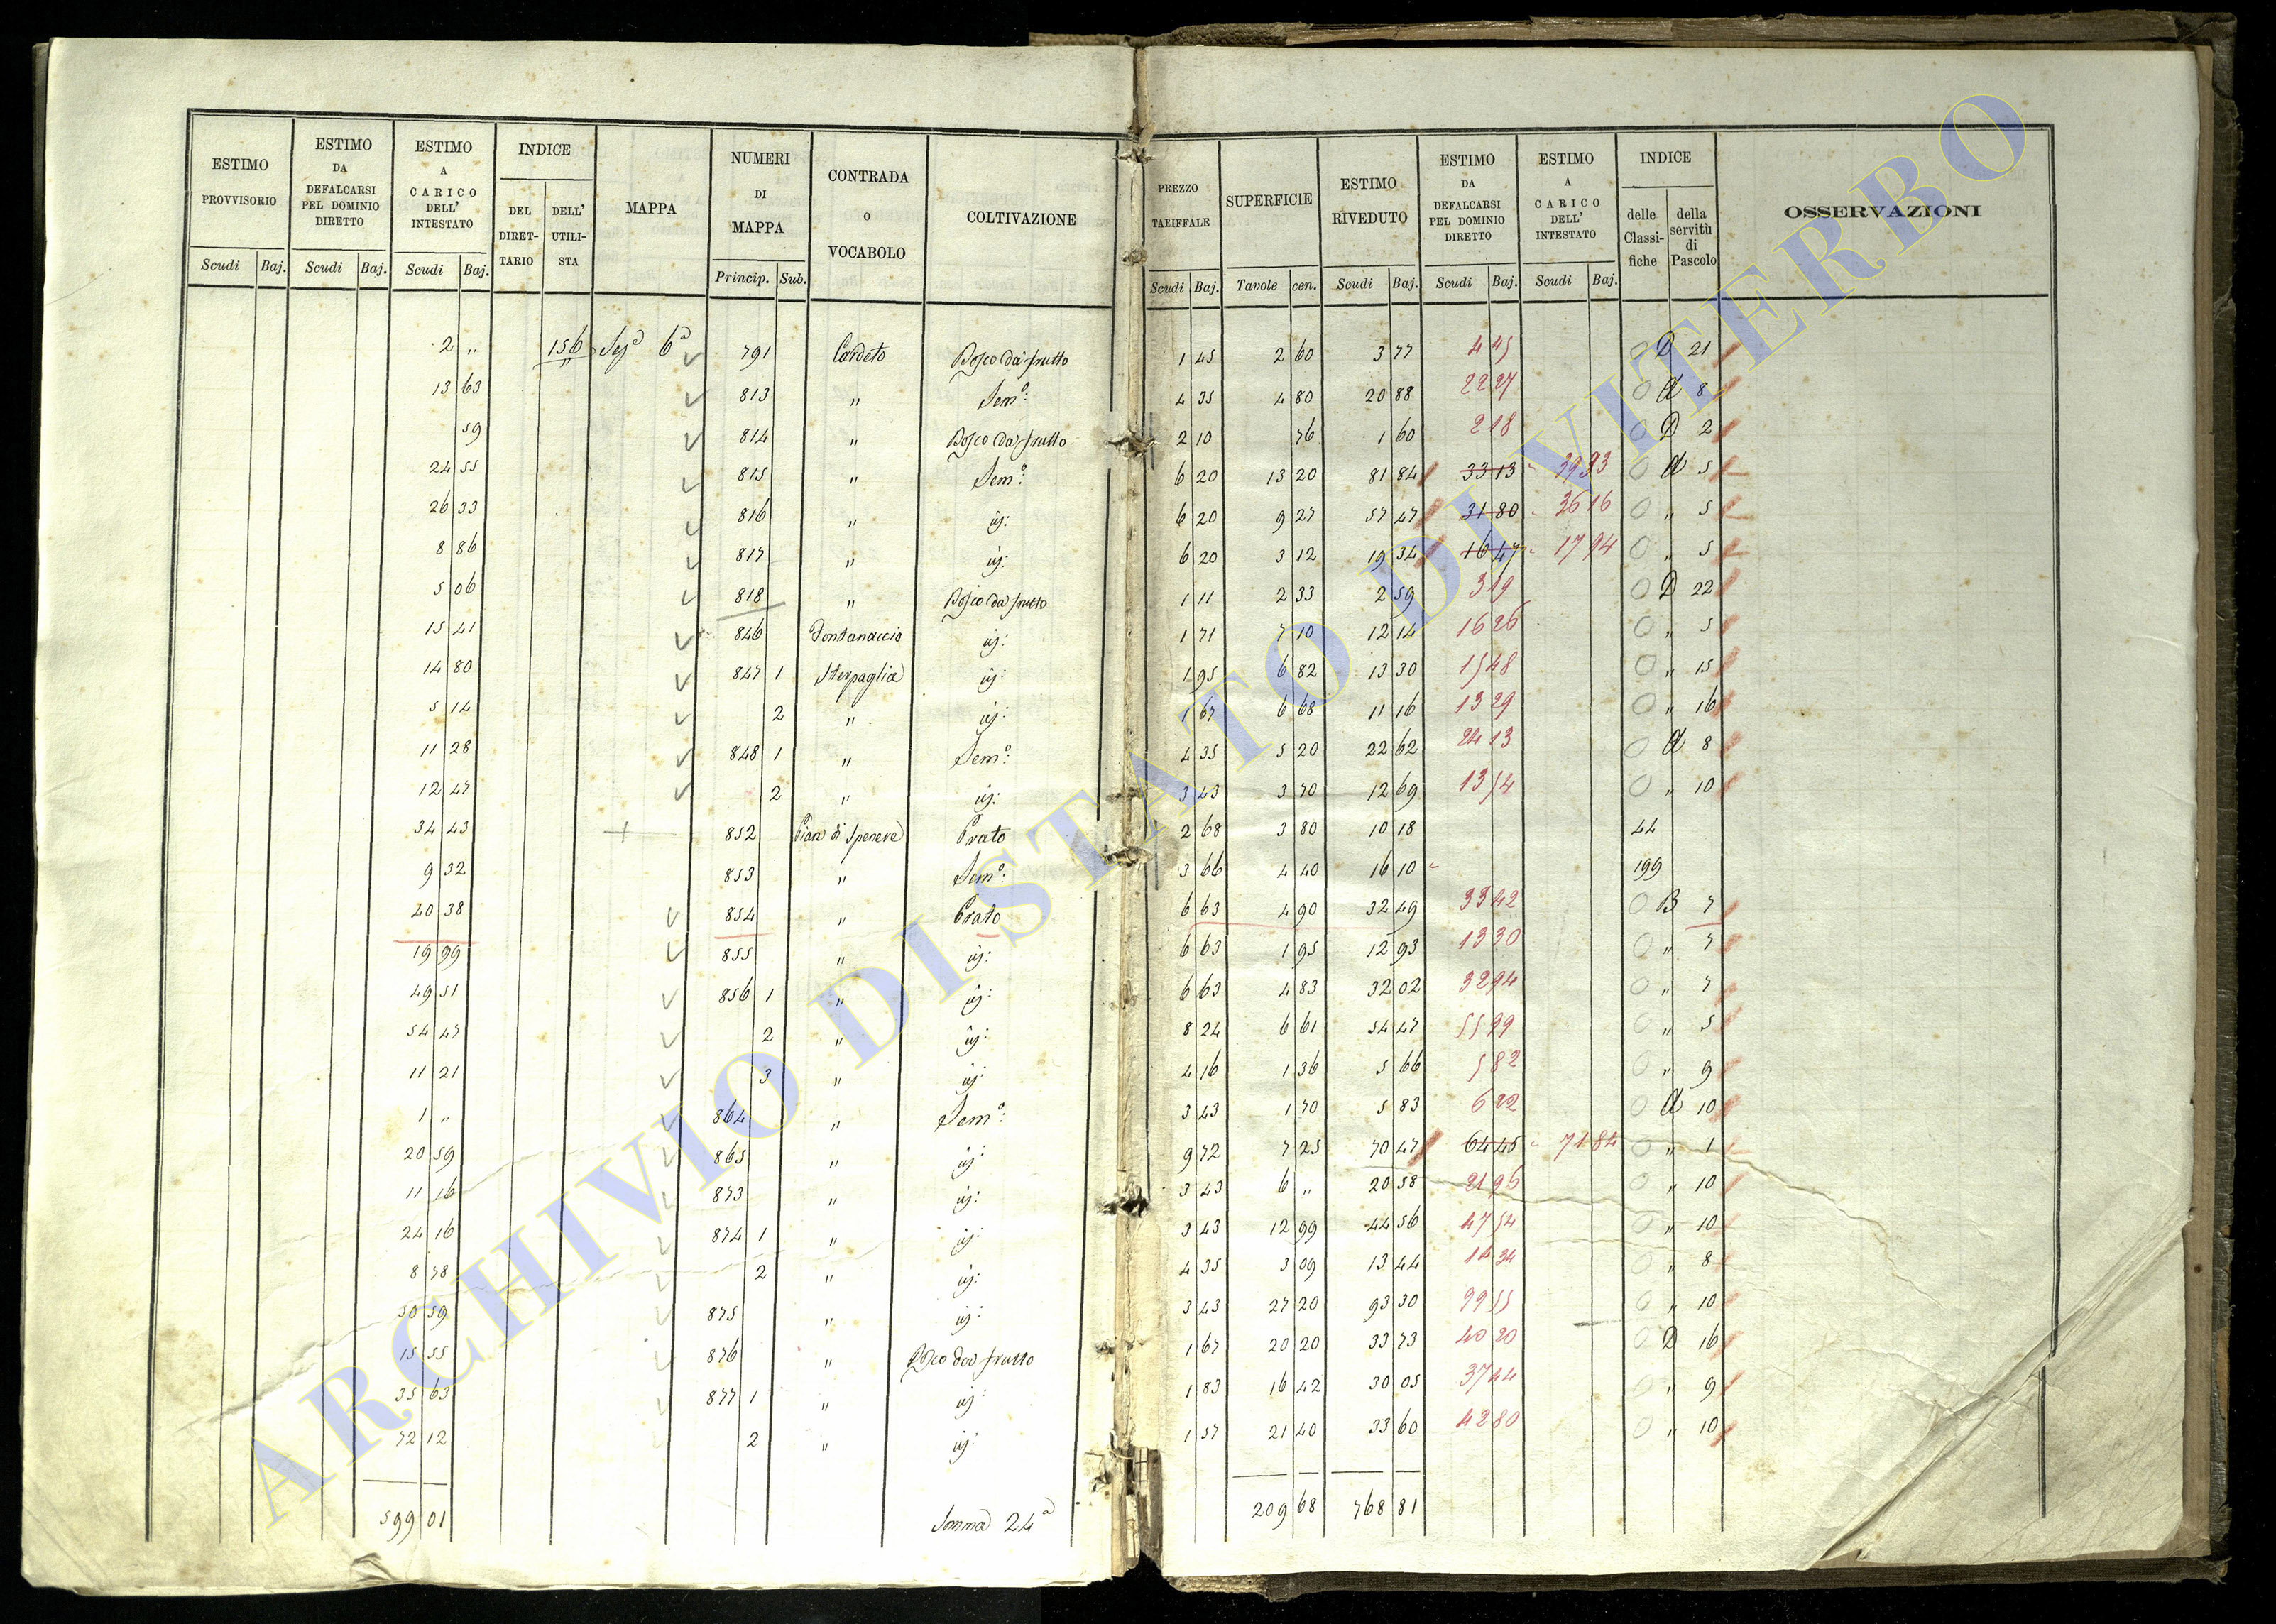 ESTIMO PROVVISORIO
ESTIMO DA DEFALCARSI PEL DOMINIO DIRETTO
ESTIMO A CARICO DELL' INTESTATO
INDICE
DEL DIRET-TARIO
DELL' UTILI-STA
MAPPA
NUMERI DI MAPPA
CONTRADA O VOCABOLO
COLTIVAZIONE
PREZZO TARIFFALE
SUPERFICIE
ESTIMO RIVEDUTO
ESTIMO DA DEFALCARSI PEL DOMINIO DIRETTO
ESTIMO A CARICO DELL' INTESTATO
INDICE
delle Classi-fiche
della servitù di Pascolo
OSSERVAZIONI
Scudi Baj. Scudi Baj. Scudi Baj. Princip. Sub. Scudi Baj. Tavole cen. Scudi Baj. Scudi Baj. Scudi Baj.
2 " 156 Sez. 6a 791 Cardeto Bosco da frutto 1 45 2 60 3 77 4 45 D 21
13 63 813 " Sem.o: 4 35 4 80 20 88 22 27 A 8
59 814 " Bosco da frutto 2 10 76 1 60 2 18 D 2
24 55 815 " Sem.o: 6 20 13 20 81 84 33 13 39 93 A 5
26 33 816 " iij: 6 20 9 27 57 47 31 80 36 16 " 5
8 86 817 " iij: 6 20 3 12 19 34 16 47 17 94 " 5
5 06 818 " Bosco da frutto 1 11 2 33 2 59 3 19 D 22
15 41 846 Fontanaccio iij: 1 71 7 10 12 14 16 26 " 5
14 80 847 1 Sterpaglia iij: 1 95 6 82 13 30 15 48 " 15
5 14 2 " iij: 1 67 6 68 11 16 13 29 " 16
11 28 848 1 " Sem.o: 4 35 5 20 22 62 24 13 A 8
12 47 2 " iij: 3 43 3 70 12 69 13 54 " 10
34 43 852 Pian di Speneve Prato 2 68 3 80 10 18 44
9 32 853 " Sem.o: 3 66 4 40 16 10 199
40 38 854 " Prato 6 63 4 90 32 49 33 42 B 7
19 99 855 " iij: 6 63 1 95 12 93 13 30 " 7
49 51 856 1 " iij: 6 63 4 83 32 02 32 94 " 7
54 47 2 " iij: 8 24 6 61 54 47 55 99 " 5
11 21 3 " iij: 4 16 1 36 5 66 5 82 " 9
1 " 864 " Sem.o: 3 43 1 70 5 83 6 22 A 10
20 59 865 " iij: 9 72 7 25 70 47 64 45 71 84 " 1
11 16 873 " iij: 3 43 6 " 20 58 21 96 " 10
24 16 874 1 " iij: 3 43 12 99 44 56 47 54 " 10
8 78 2 " iij: 4 35 3 09 13 44 14 34 " 8
50 59 875 " iij: 3 43 27 20 93 30 99 55 " 10
15 55 876 " Bosco da frutto 1 67 20 20 33 73 40 20 D 16
35 63 877 1 " iij: 1 83 16 42 30 05 37 44 " 9
72 12 2 " iij: 1 57 21 40 33 60 42 80 " 10
599 01 Somma 24a 209 68 768 81
ARCHIVIO DI STATO DI VITERBO